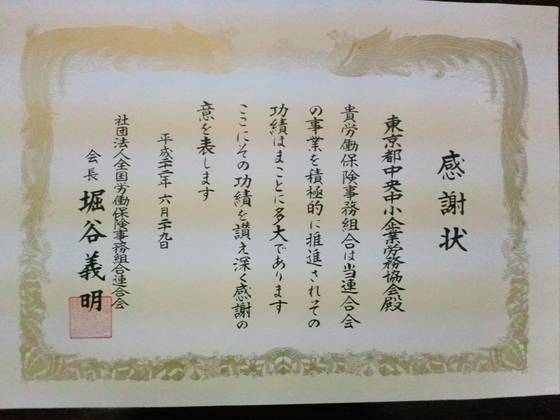 感謝状
東京都中央中小企業労務協会殿
貴労働保険事務組合は当連合会
の事業を積極的に推進されその
功績はまことに多大であります
ここにその功績を讃え深く感謝の
意を表します
平成二十二年六月二十九日
社団法人全国労働保険事務組合連合会
会長 堀谷義明